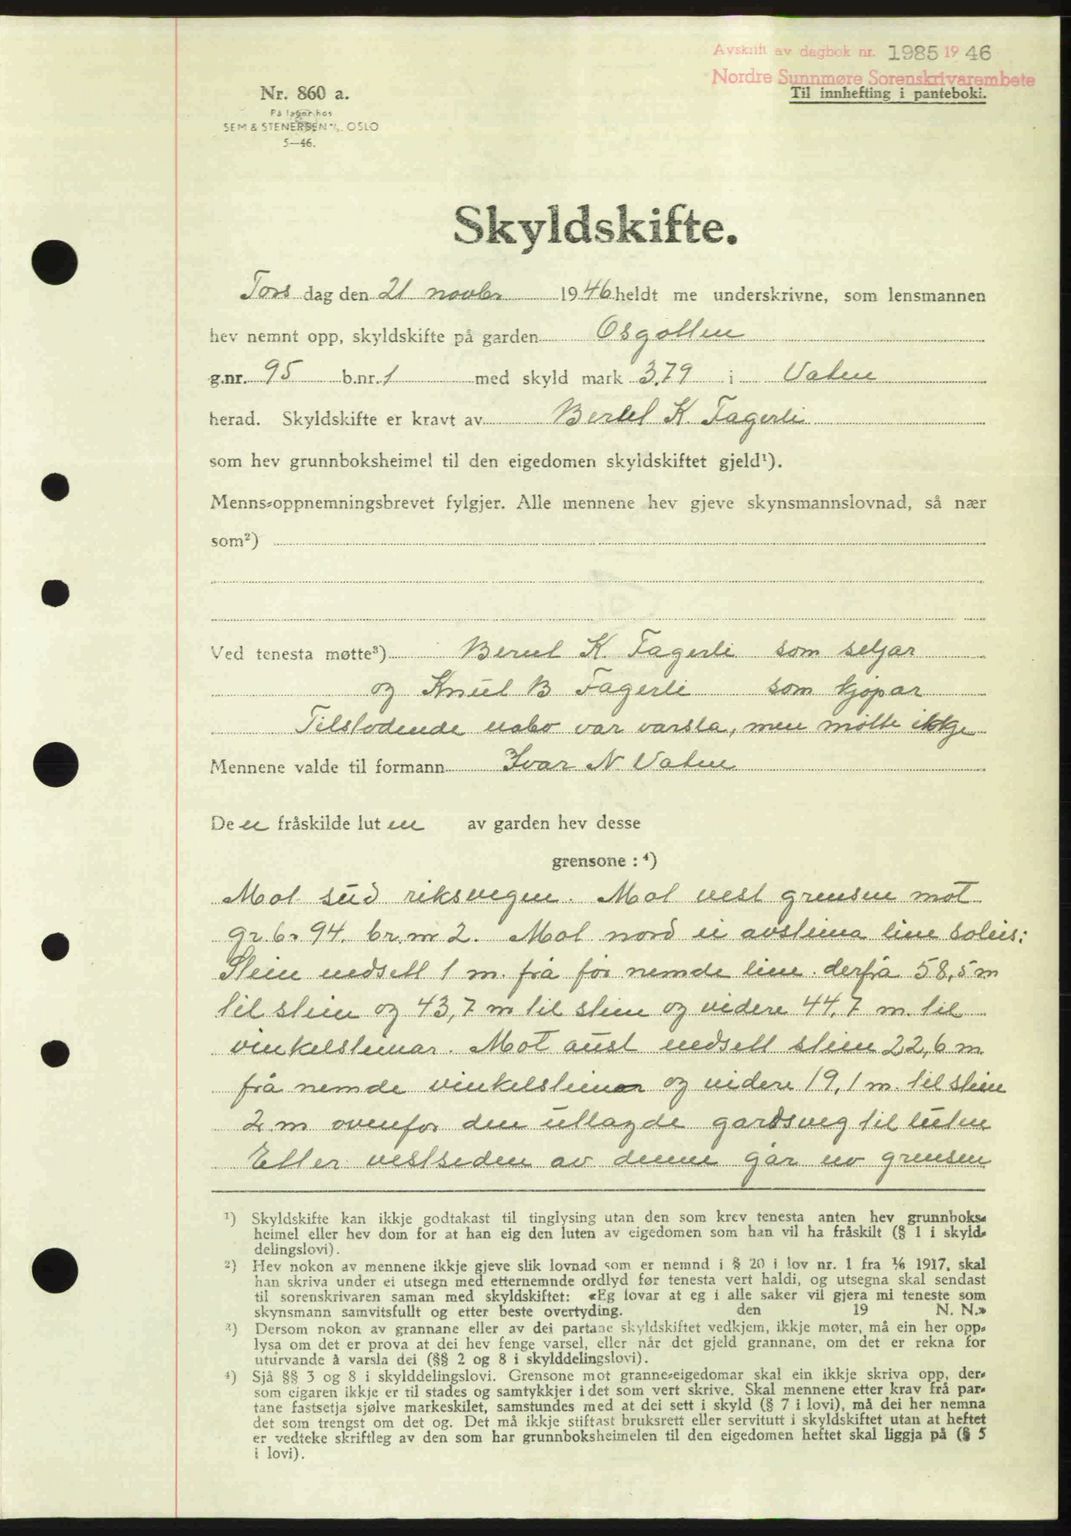 Avskrift av dagbok nr. 1985 1946
Nordre Sunnmøre Sorenskrivarembete
Til innhefting i panteboki.
Nr. 860 a.
På lager hos
SEM & STENERSEN A/S. OSLO
5—46.
Skyldskifte.
Tors dag den 21 novbr 1946 heldt me underskrivne, som lensmannen
hev nemnt opp, skyldskifte på garden Osgotten
g.nr. 95 b.nr. 1 med skyld mark 3.79 i Vatne
herad. Skyldskifte er kravt av Bertel K. Fagerli
som hev grunnboksheimel til den eigedomen skyldskiftet gjeld¹).
Menns-oppnemningsbrevet fylgjer. Alle mennene hev gjeve skynsmannslovnad, så nær
som²)
Ved tenesta møtte³) Bertel K. Fagerli som seljar
og Knut B Fagerli som kjøpar
Tilstøtende nabo var varsla, men møtte ikkje
Mennene valde til formann Ivar N. Vatne
De en fråskilde lut en av garden hev desse
grensone : ⁴)
Mot sud riksvegen. Mot vest grensen mot
gr. nr 94. br. nr 2. Mot nord ei avsteina line soleis:
Stein nedsett 1 m. frå før nemde line. derfrå 58,5 m
til stein og 43,7 m til stein og videre 44,7 m. til
vinkelsteinar. Mot aust nedsett stein 22,6 m
frå nemde vinkelsteinar og videre 19,1 m. til stein
2 m ovenfor den utlagde gardsveg til luten
Etter vestsiden av denne går no grensen
¹) Skyldskifte kan ikkje godtakast til tinglysing utan den som krev tenesta anten hev grunnboks-
heimel eller hev dom for at han eig den luten av eigedomen som han vil ha fråskilt (§ 1 i skyld-
delingslovi).
²) Hev nokon av mennene ikkje gjeve slik lovnad som er nemnd i § 20 i lov nr. 1 fra 1/6 1917, skal
han skriva under ei utsegn med etternemnde ordlyd før tenesta vert haldi, og utsegna skal sendast
til sorenskrivaren saman med skyldskiftet: «Eg lovar at eg i alle saker vil gjera mi teneste som
skynsmann samvitsfullt og etter beste overtyding. den 19 N. N.»
³) Dersom nokon av grannane eller av dei partane skyldskiftet vedkjem, ikkje møter, må ein her opp-
lysa om det er prova at dei hev fenge varsel, eller når det gjeld grannane, om det er rekna for
uturvande å varsla dei (§§ 2 og 8 i skylddelingslovi).
⁴) Sjå §§ 3 og 8 i skylddelingslovi. Grensone mot granne-eigedomar skal ein ikkje skriva opp, der-
som eigaren ikkje er til stades og samtykkjer i det som vert skrive. Skal mennene etter krav frå par-
tane fastsetja sjølve markeskilet, samstundes med at dei sett i skyld (§ 7 i lovi), må dei her nemna
det som trengst om det og. Det må ikkje stiftast bruksrett eller servitutt i skyldskiftet utan at heftet
er vedteke skriftleg av den som har grunnboksheimelen til den eigedomen heftet skal liggja på (§ 5
i lovi).